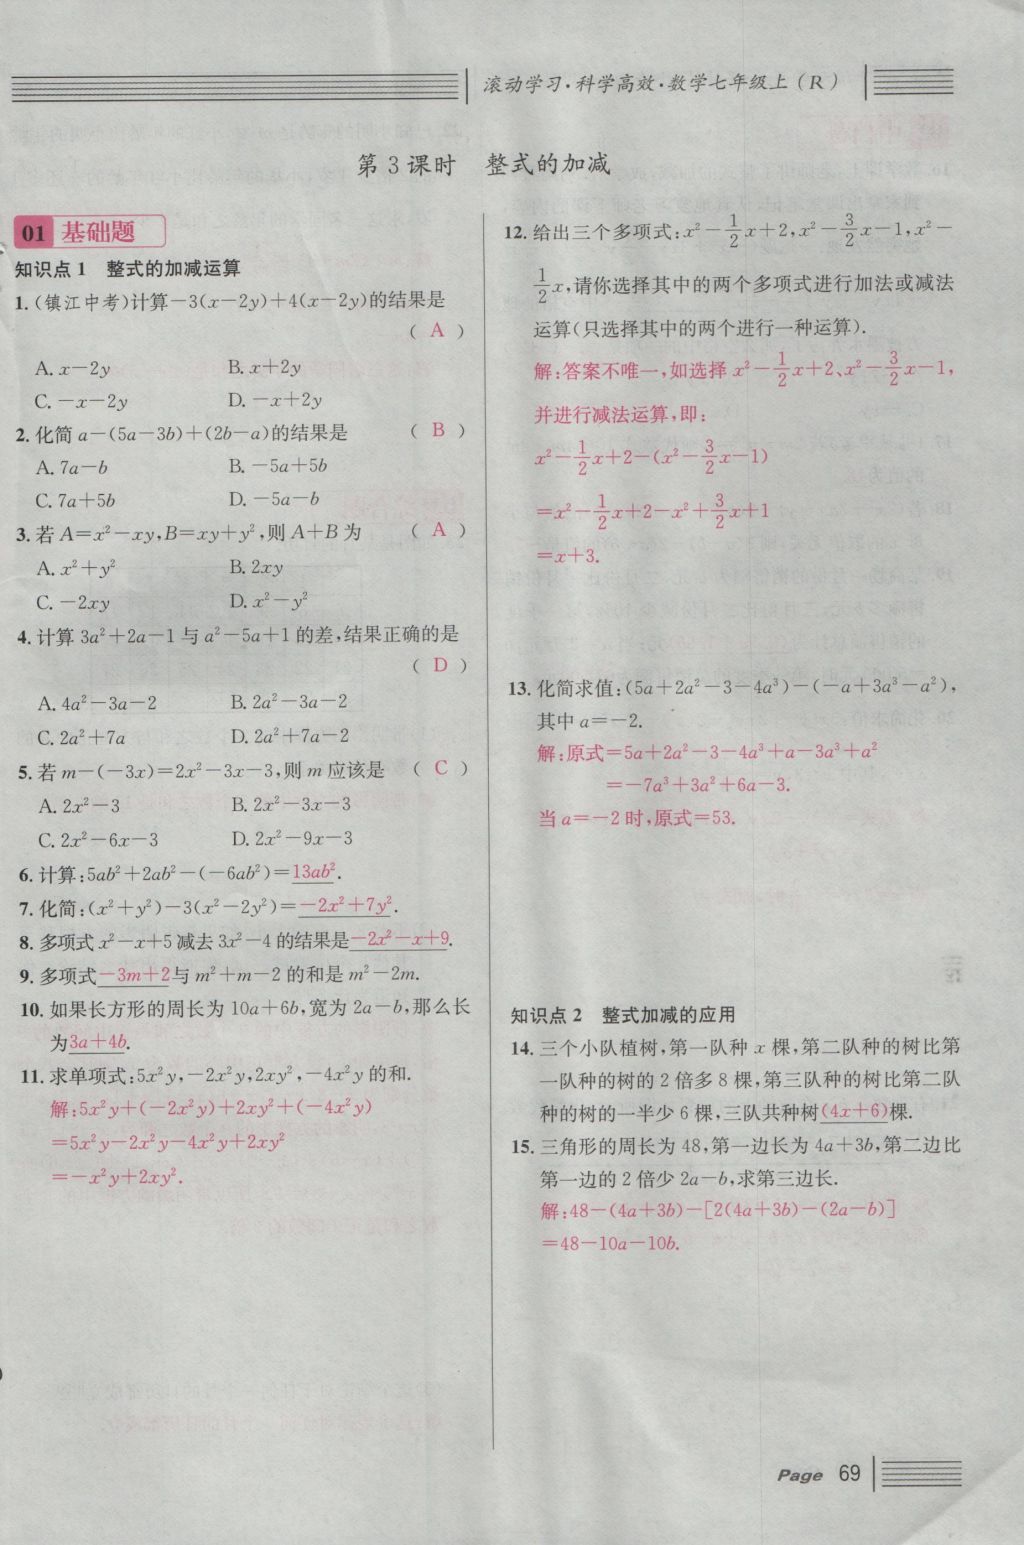 滚动学习·科学高效·数学七年级上(R)
第3课时 整式的加减
01 基础题
知识点1 整式的加减运算
1.(镇江中考)计算－3(x－2y)＋4(x－2y)的结果是
( A )
A. x－2y B. x＋2y
C. －x－2y D. －x＋2y
2. 化简 a－(5a－3b)＋(2b－a)的结果是 ( B )
A. 7a－b B. －5a＋5b
C. 7a＋5b D. －5a－b
3. 若 A＝x²－xy,B＝xy＋y²,则 A＋B 为 ( A )
A. x²＋y² B. 2xy
C. －2xy D. x²－y²
4. 计算 3a²＋2a－1 与 a²－5a＋1 的差,结果正确的是
( D )
A. 4a²－3a－2 B. 2a²－3a－2
C. 2a²＋7a D. 2a²＋7a－2
5. 若 m－(－3x)＝2x²－3x－3,则 m 应该是 ( C )
A. 2x²－3 B. 2x²－3x－3
C. 2x²－6x－3 D. 2x²－9x－3
6. 计算:5ab²＋2ab²－(－6ab²)＝13ab².
7. 化简:(x²＋y²)－3(x²－2y²)＝－2x²＋7y².
8. 多项式 x²－x＋5 减去 3x²－4 的结果是－2x²－x＋9.
9. 多项式－3m＋2与 m²＋m－2 的和是 m²－2m.
10. 如果长方形的周长为 10a＋6b,宽为 2a－b,那么长
为3a＋4b.
11. 求单项式:5x²y,－2x²y,2xy²,－4x²y 的和.
解:5x²y＋(－2x²y)＋2xy²＋(－4x²y)
＝5x²y－2x²y－4x²y＋2xy²
＝－x²y＋2xy².
12. 给出三个多项式:x²－1/2x＋2,x²－3/2x－1,x²－
1/2x,请你选择其中的两个多项式进行加法或减法
运算(只选择其中的两个进行一种运算).
解:答案不唯一,如选择 x²－1/2x＋2、x²－3/2x－1,
并进行减法运算,即:
x²－1/2x＋2－(x²－3/2x－1)
＝x²－1/2x＋2－x²＋3/2x＋1
＝x＋3.
13. 化简求值:(5a＋2a²－3－4a³)－(－a＋3a³－a²),
其中 a＝－2.
解:原式＝5a＋2a²－3－4a³＋a－3a³＋a²
＝－7a³＋3a²＋6a－3.
当 a＝－2 时,原式＝53.
知识点2 整式加减的应用
14. 三个小队植树,第一队种 x 棵,第二队种的树比第
一队种的树的 2 倍多 8 棵,第三队种的树比第二队
种的树的一半少 6 棵,三队共种树(4x＋6)棵.
15. 三角形的周长为 48,第一边长为 4a＋3b,第二边比
第一边的 2 倍少 2a－b,求第三边长.
解:48－(4a＋3b)－[2(4a＋3b)－(2a－b)]
＝48－10a－10b.
Page 69